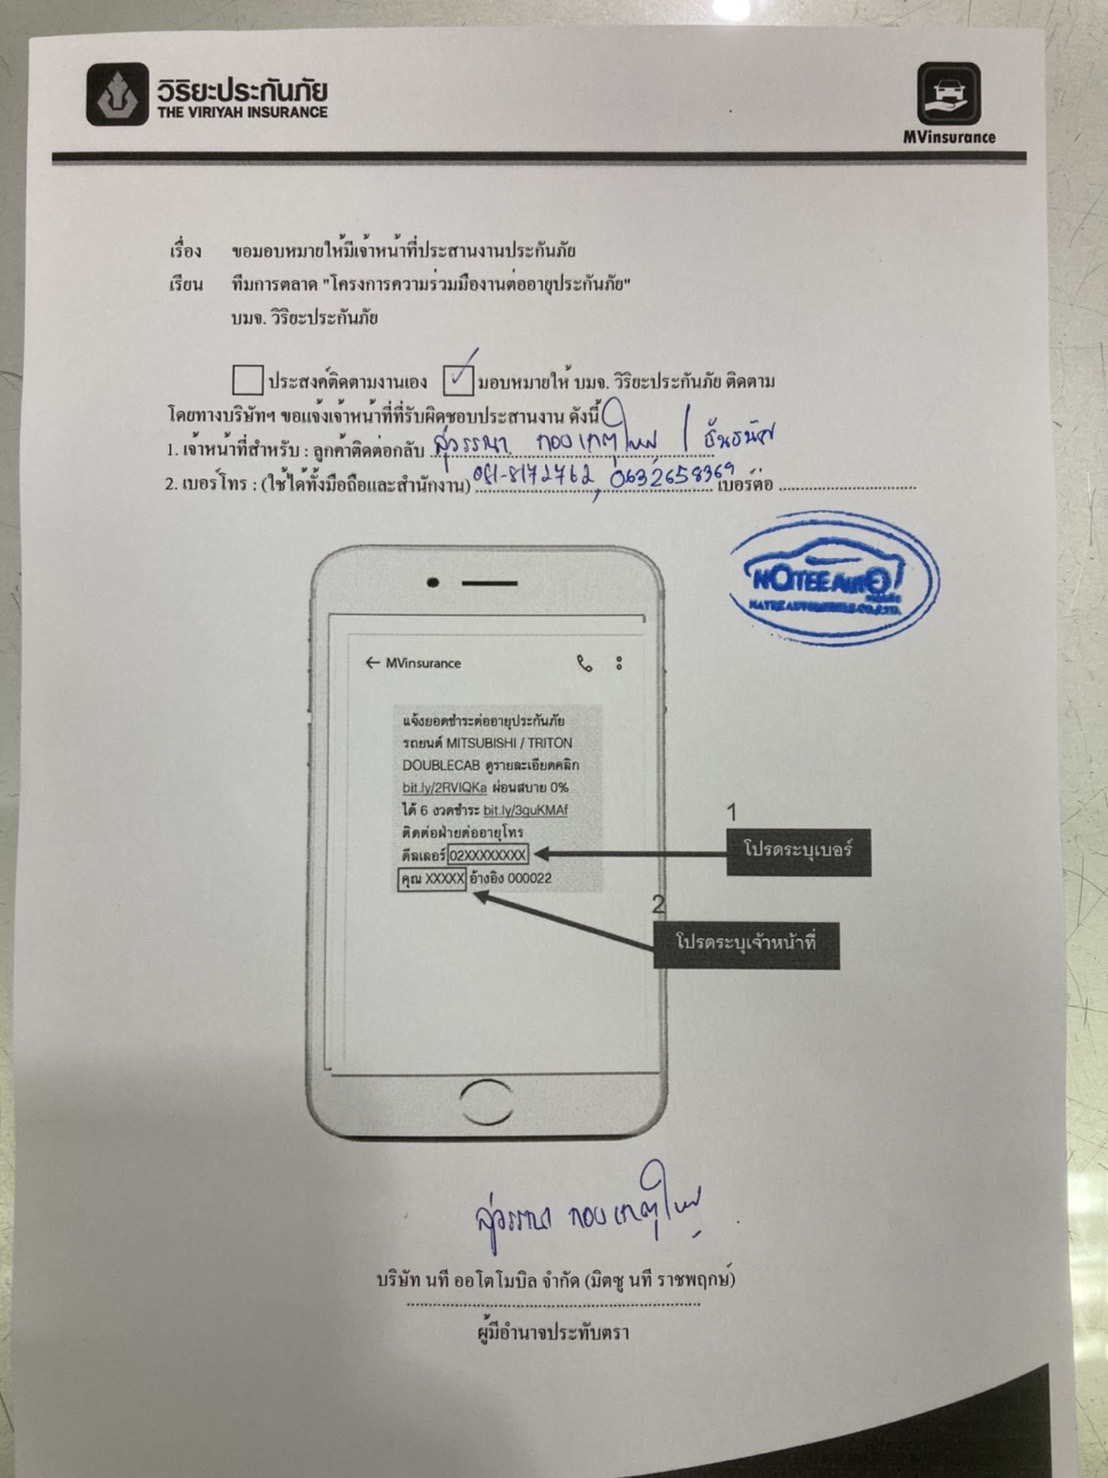 วิริยะประกันภัย
THE VIRIYAH INSURANCE
MVinsurance
เรื่อง ขอมอบหมายให้มีเจ้าหน้าที่ประสานงานประกันภัย
เรียน ทีมการตลาด "โครงการความร่วมมืองานต่ออายุประกันภัย"
บมจ. วิริยะประกันภัย
ประสงค์ติดตามงานเอง ✓ มอบหมายให้ บมจ. วิริยะประกันภัย ติดตาม
โดยทางบริษัทฯ ขอแจ้งเจ้าหน้าที่ที่รับผิดชอบประสานงาน ดังนี้
1. เจ้าหน้าที่สำหรับ : ลูกค้าติดต่อกลับ สุวรรณา /
2. เบอร์โทร : (ใช้ได้ทั้งมือถือและสำนักงาน) 081-8172762, 0632658369 เบอร์ต่อ
NATEE AUTO
NATEE AUTOMOBILE CO.,LTD.
← MVinsurance
แจ้งยอดชำระต่ออายุประกันภัย
รถยนต์ MITSUBISHI / TRITON
DOUBLECAB ดูรายละเอียดคลิก
bit.ly/2RVIQKa ผ่อนสบาย 0%
ได้ 6 งวดชำระ bit.ly/3guKMAf
ติดต่อฝ่ายต่ออายุโทร
ดีลเลอร์ 02XXXXXXXX
คุณ XXXXX อ้างอิง 000022
1
โปรดระบุเบอร์
2
โปรดระบุเจ้าหน้าที่
สุวรรณา
บริษัท นที ออโตโมบิล จำกัด (มิตซู นที ราชพฤกษ์)
ผู้มีอำนาจประทับตรา